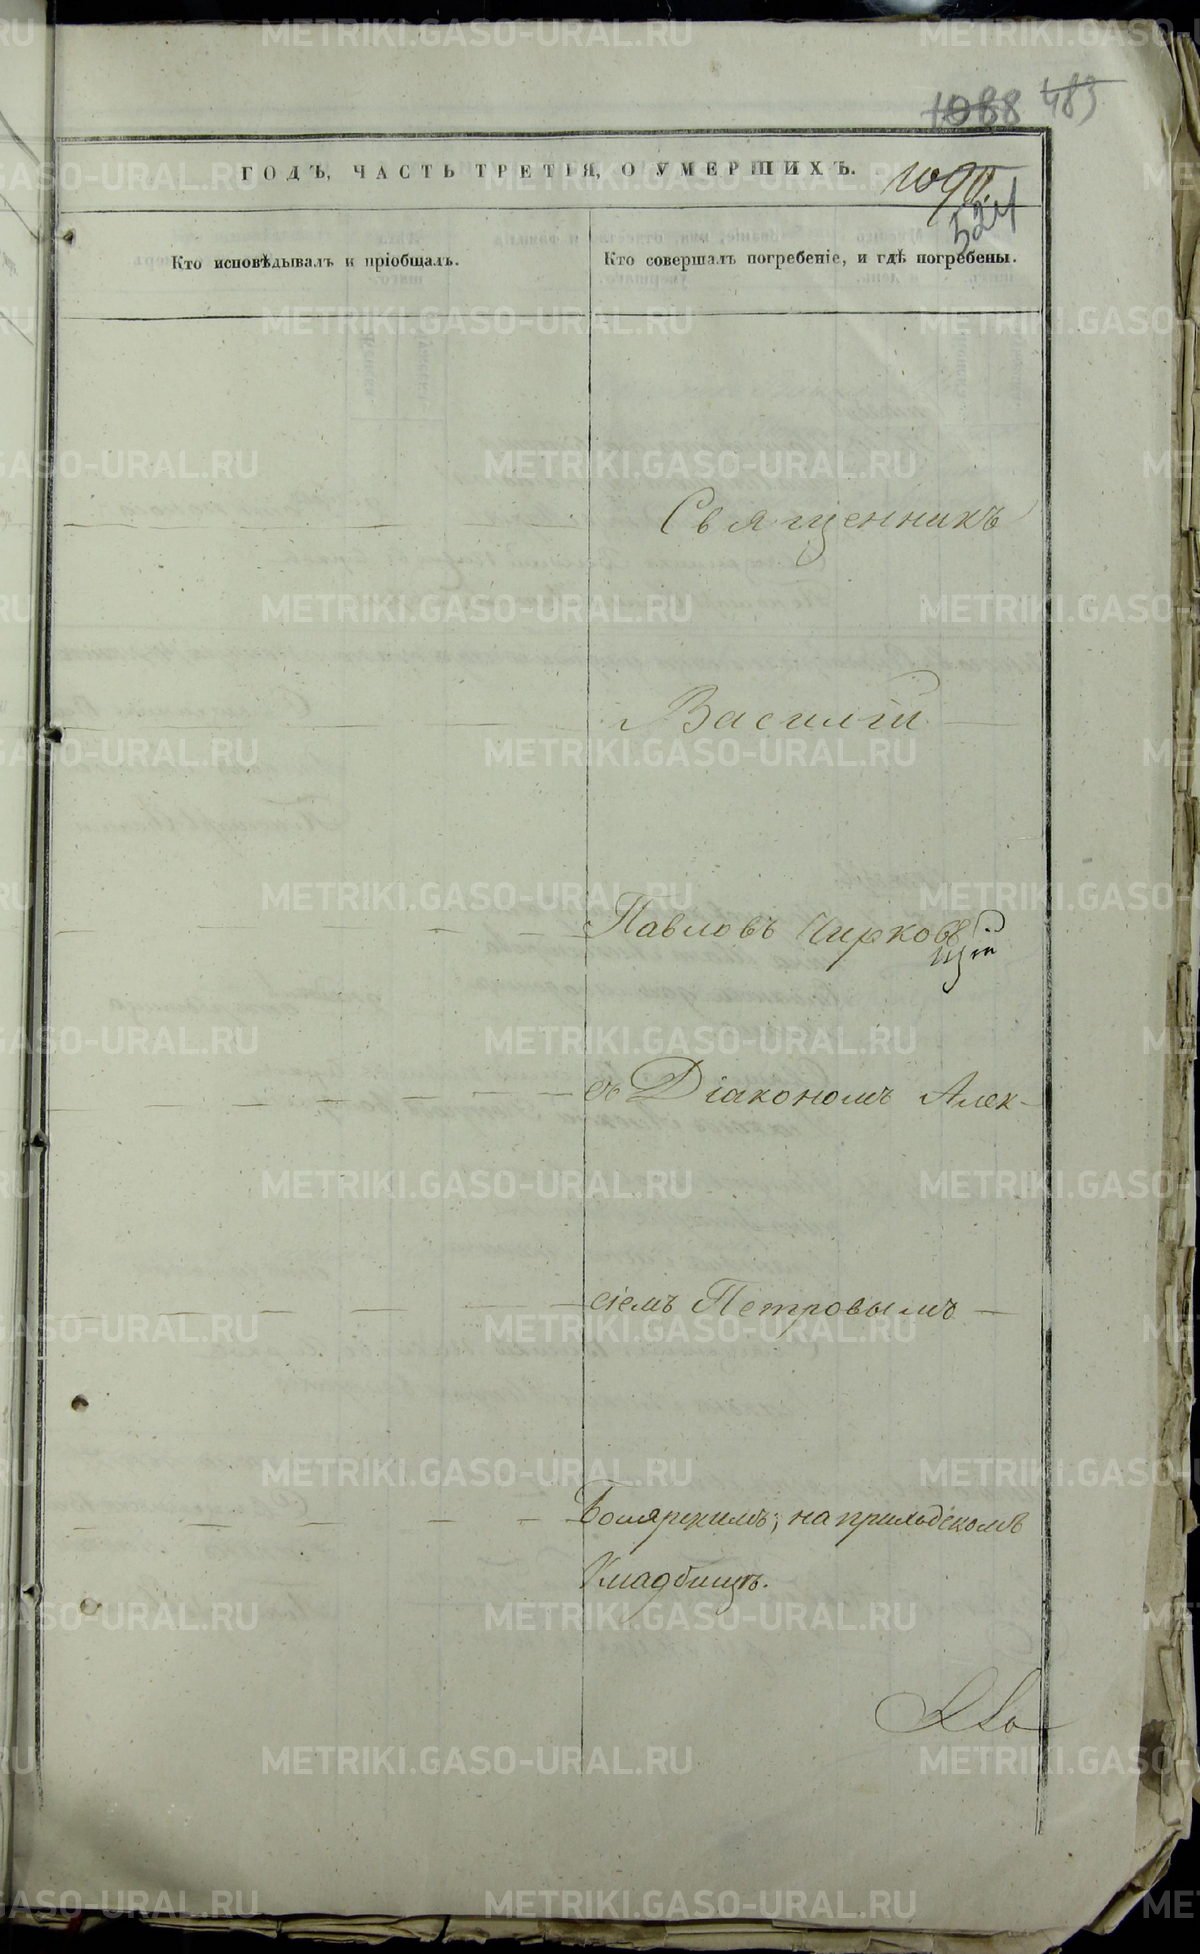 1088 483
ГОДЪ, ЧАСТЬ ТРЕТІЯ, О УМЕРШИХЪ.
1090.
521
Кто исповѣдывалъ и пріобщалъ.
Кто совершалъ погребеніе, и гдѣ погребены.
Священникъ
Василій
Павловъ Чирковъ
съ Діакономъ Алек-
сіемъ Петровымъ
Боярскимъ; на приходскомъ
Кладбищѣ.
METRIKI.GASO-URAL.RU